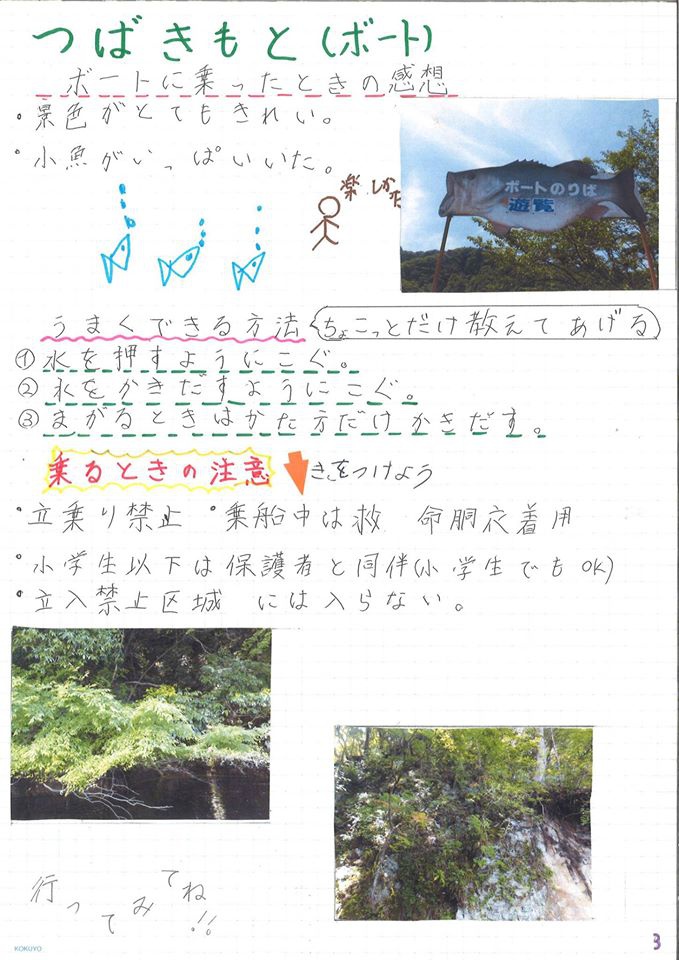 つばきもと(ボート)
ボートに乗ったときの感想
・景色がとてもきれい。
・小魚がいっぱいいた。
楽しかた
ボートのりば
遊覧
うまくできる方法 ちょこっとだけ教えてあげる
①水を押すようにこぐ。
②水をかきだすようにこぐ。
③まがるときはかた方だけかきだす。
乗るときの注意 きをつけよう
・立乗り禁止 ・乗船中は救 命胴衣着用
・小学生以下は保護者と同伴(小学生でもOK)
・立入禁止区城 には入らない。
行ってみてね!!
KOKUYO
3